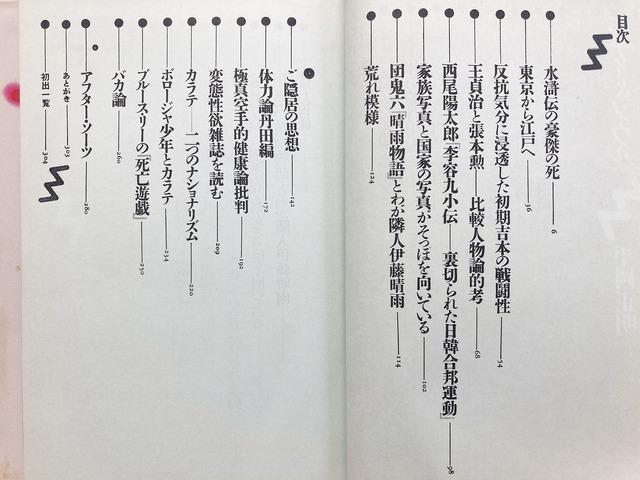 目次
水滸伝の豪傑の死 6
東京から江戸へ 36
反抗気分に浸透した初期吉本の戦闘性 54
王貞治と張本勲――比較人物論的考 68
西尾陽太郎「李容九小伝――裏切られた日韓合邦運動」 98
家族写真と国家の写真がそっぽを向いている 102
団鬼六「晴雨物語」とわが隣人伊藤晴雨 114
荒れ模様 124
ご隠居の思想 142
体力論丹田編 172
極真空手的健康論批判 192
変態性欲雑誌を読む 209
カラテ――二つのナショナリズム 220
ボロージャ少年とカラテ 234
ブルース・リーの「死亡遊戯」 250
バカ論 260
アフター・ソーツ 280
あとがき 303
初出一覧 304